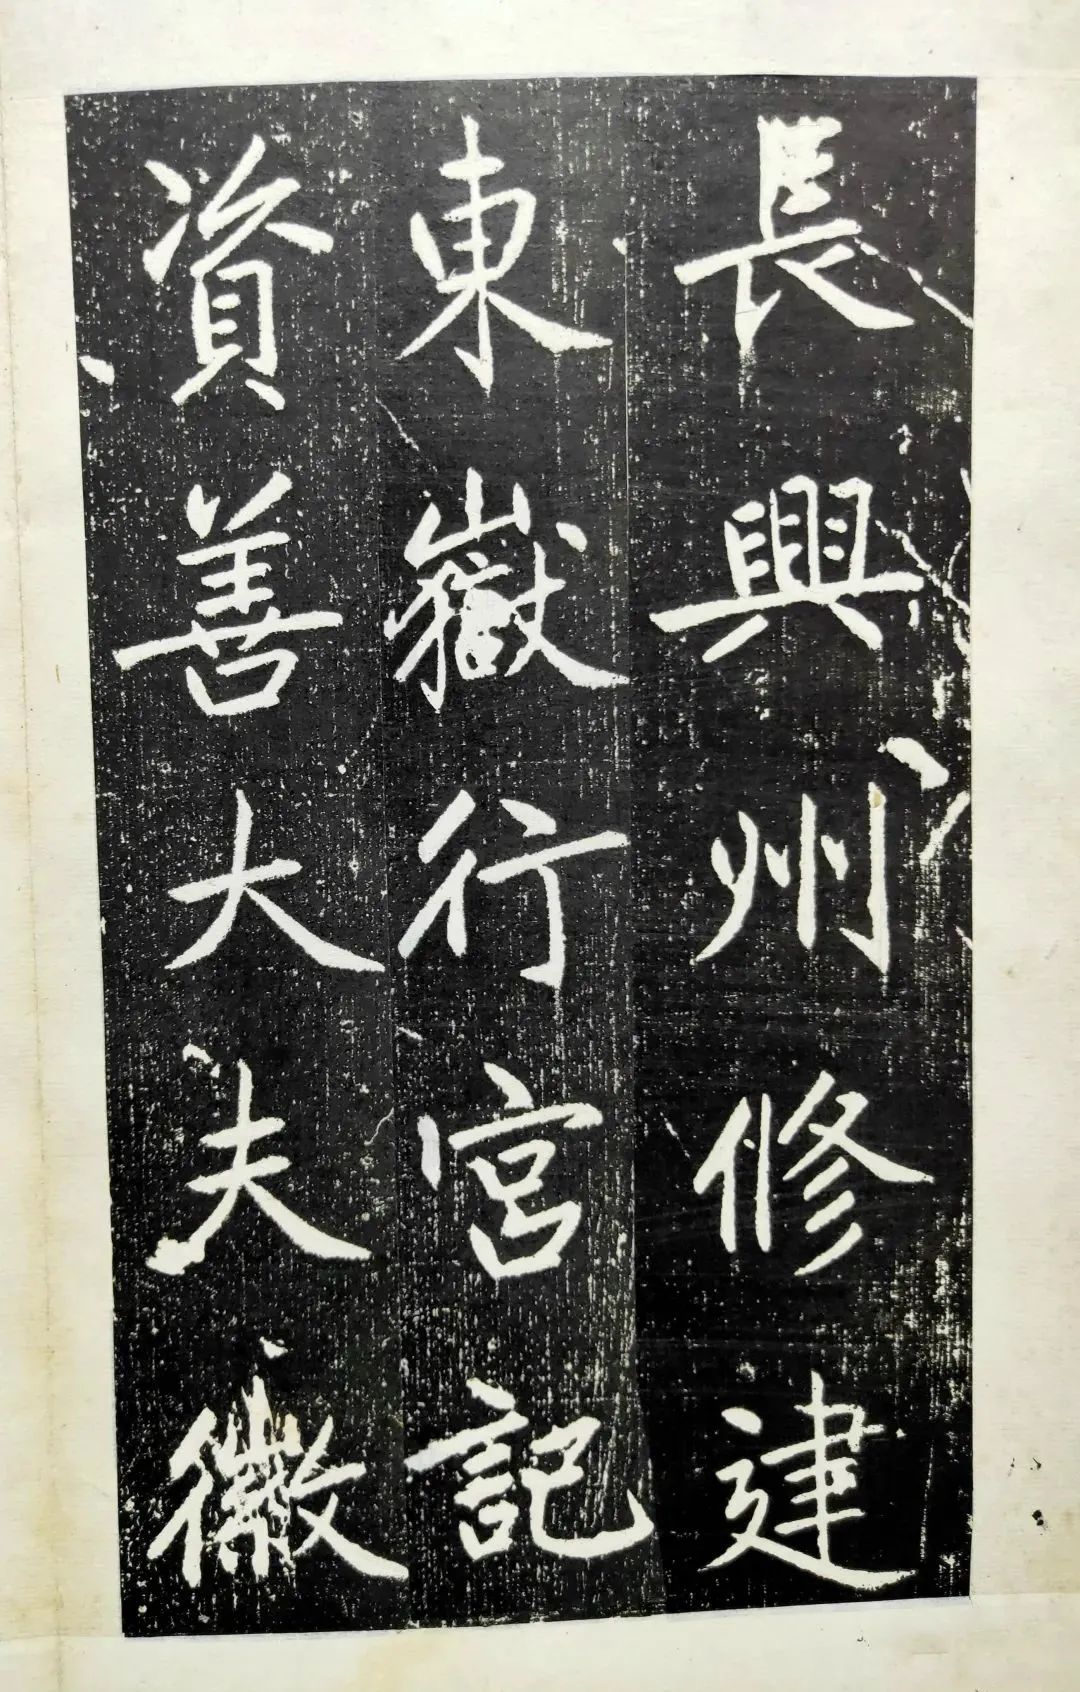 長興州修建
東嶽行宮記
資善大夫徽